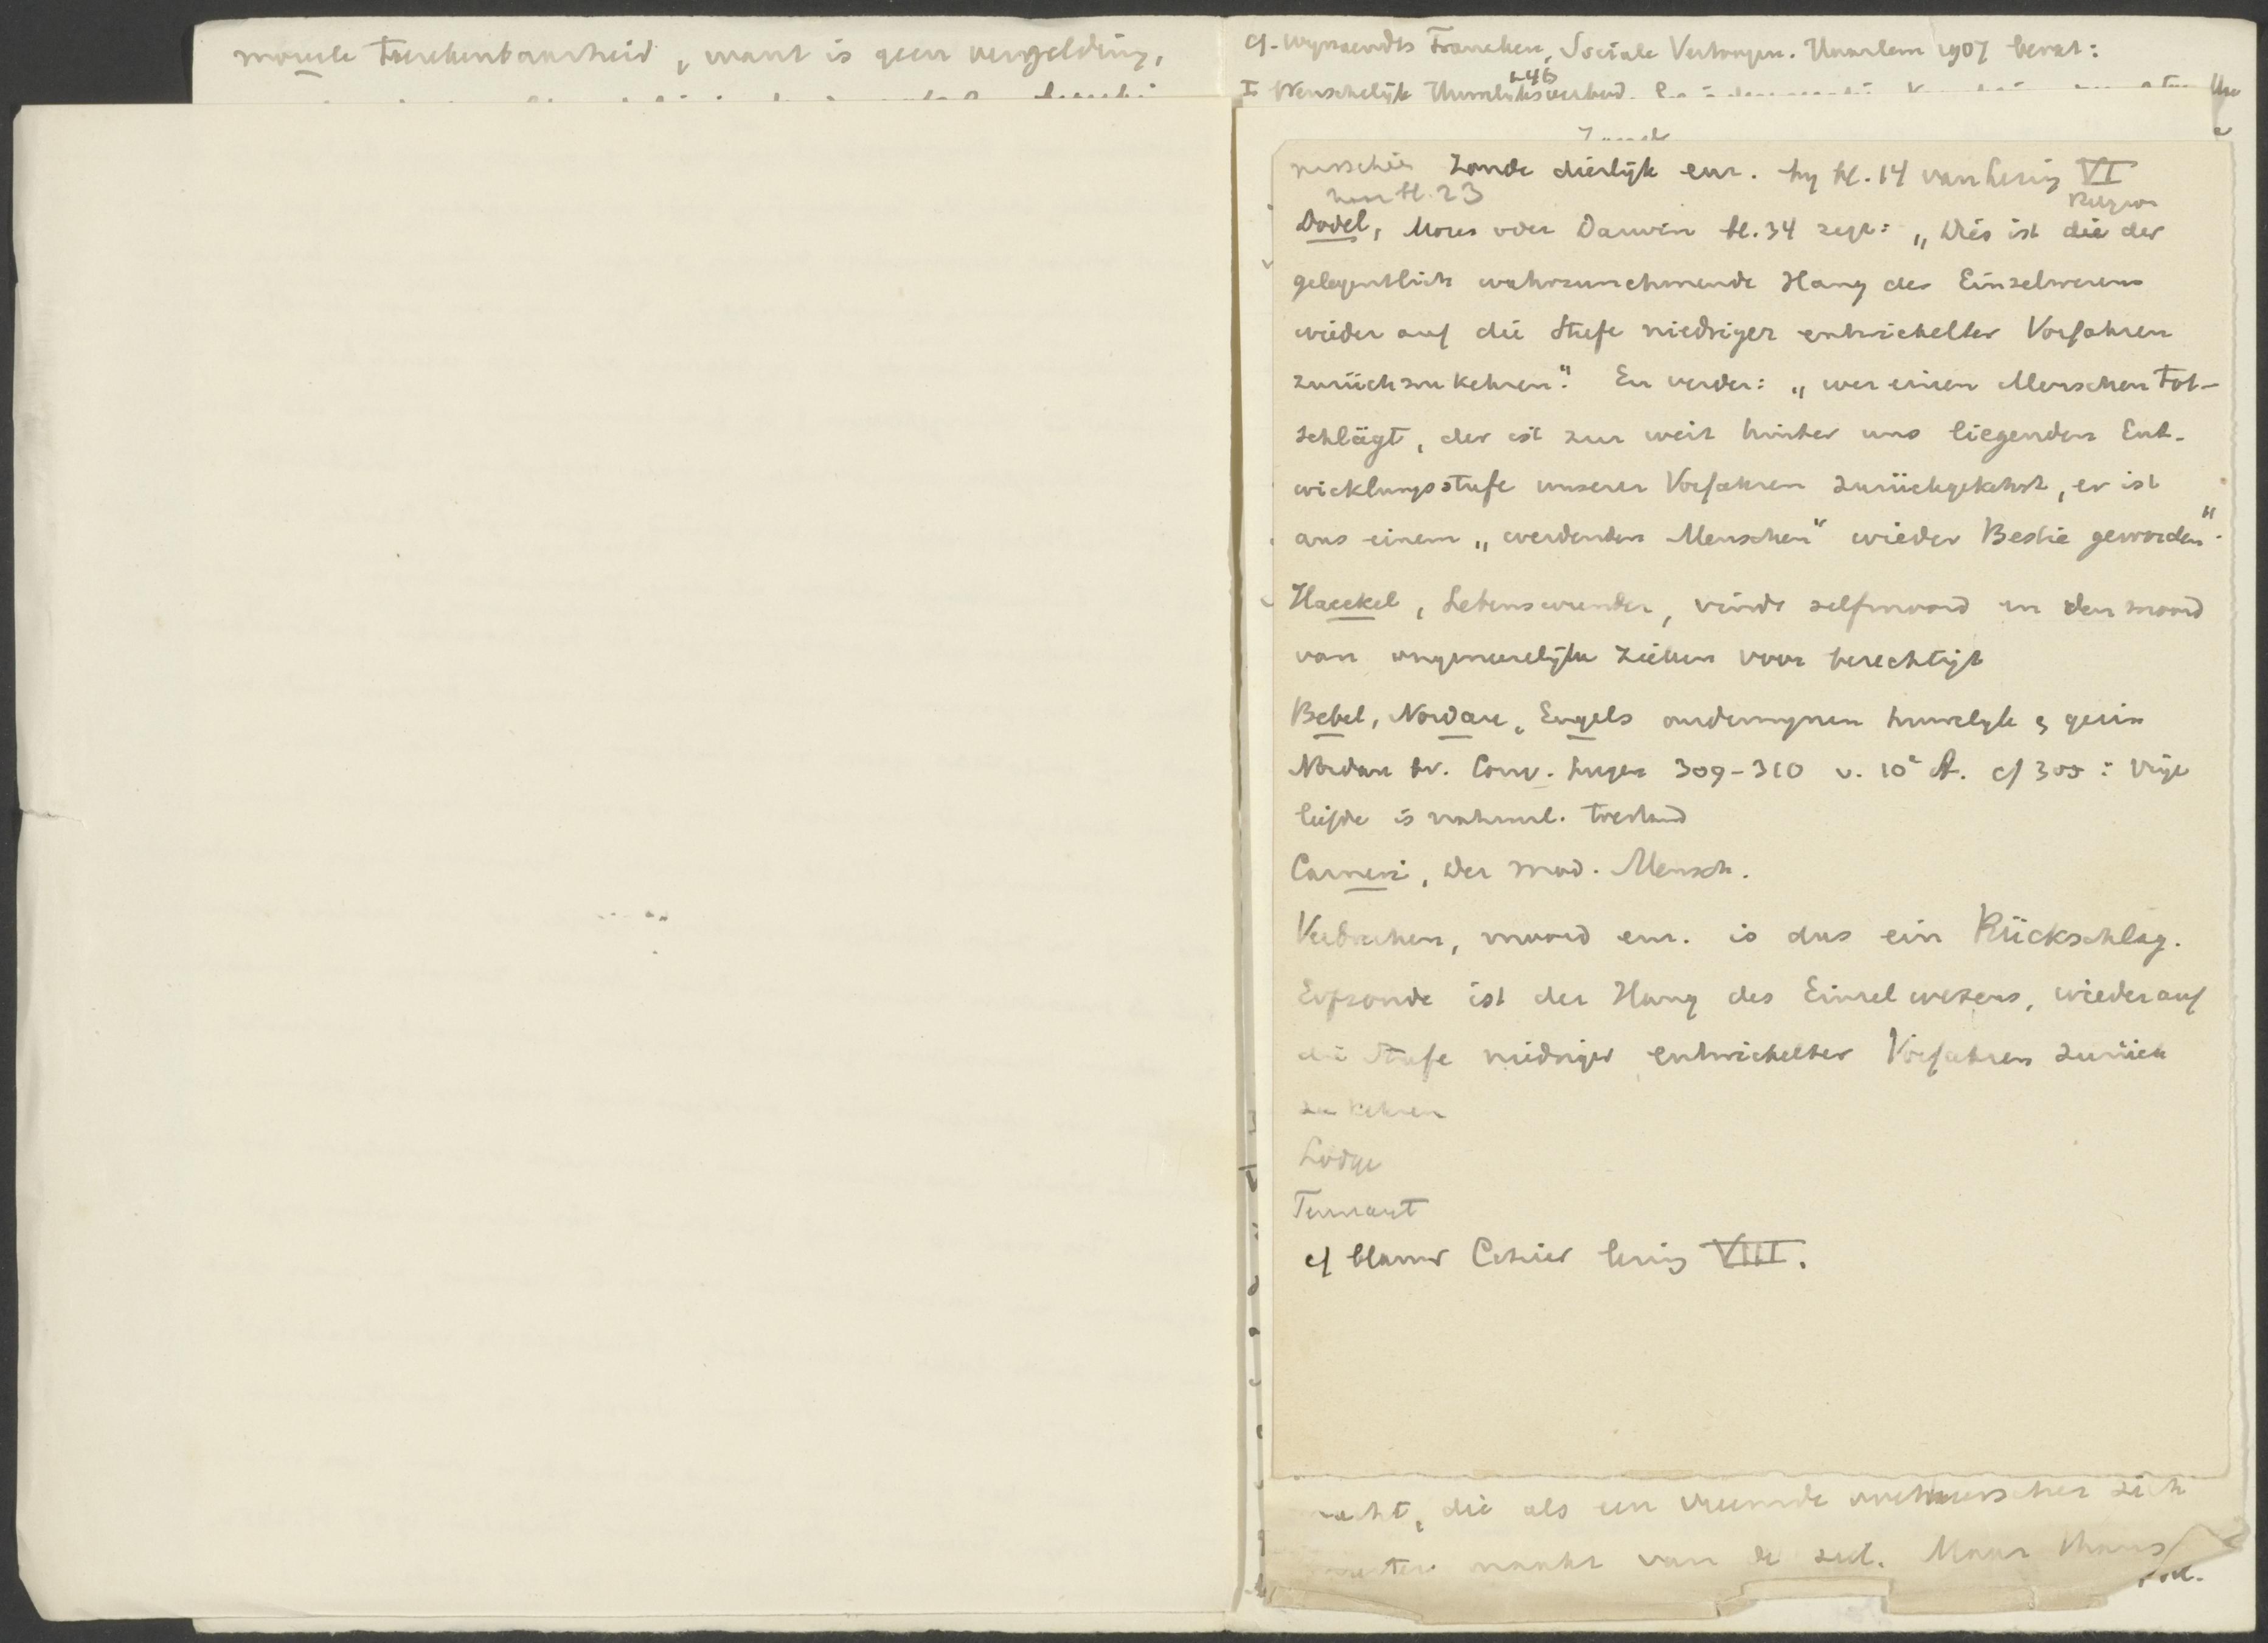 morele toerekenbaarheid, want is geen vergelding,
cf. Wynaendts Francken, Sociale Vertoogen. Haarlem 1907 bevat:
1-46
I Wenschelijk Huwelijksverbod.
misschien Zonde dierlijk enz. by bl. 14 van lezing VI
van bl. 23
Dodel, Moses oder Darwin bl. 34 zegt: „Dies ist die der
gelegentlich wahrzunehmende Hang des Einzelwesens
wieder auf die Stufe niedriger entwickelter Vorfahren
zurückzukehren". En verder: „wer einen Menschen tot-
schlägt, der ist zur weit hinter uns liegenden Ent-
wicklungsstufe unserer Vorfahren zurückgekehrt, er ist
aus einem „werdenden Menschen" wieder Bestie geworden".
Haeckel, Lebenswunder, vindt zelfmoord en den moord
van ongeneeslijke zieken voor berechtigt
Bebel, Nordau, Engels ondermynen huwelyk & gezin
Nordau bv. Conv. Lügen 309-310 v. 10e A. cf 305: vrije
liefde is natuurl. toestand
Carneri, der mod. Mensch.
Verbreken, moord enz. is dus ein Rückschlag.
Erfzonde ist der Hang des Einzelwesens, wieder auf
die Stufe niedriger entwickelter Vorfahren zurück
zu kehren
Lodge
Tennant
cf blauw Cahier lezing VIII.
die als een vreemde overheerscher zich
meester maakt van de ziel. Maar thans